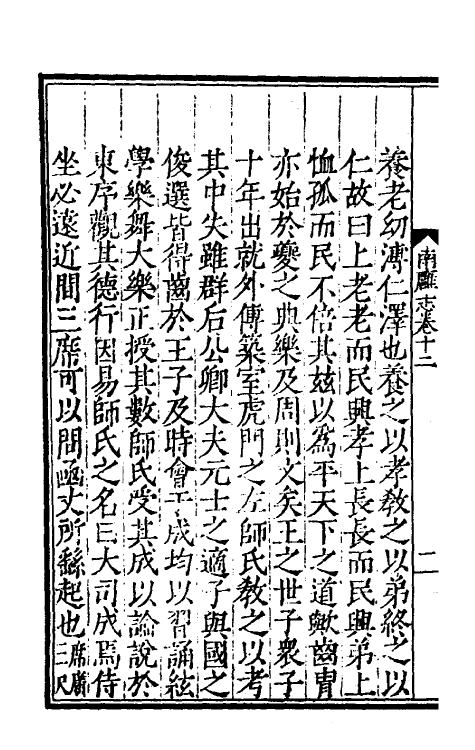 南廱志卷十二
二
養老幼溥仁澤也養之以孝教之以弟終之以
仁故曰上老老而民興孝上長長而民興弟上
恤孤而民不倍其玆以爲平天下之道歟齒胄
亦始於夔之典樂及周則文矣王之世子衆子
十年出就外傅築室虎門之左師氏教之以考
其中失雖群后公卿大夫元士之適子與國之
俊選皆得齒於王子及時會于成均以習誦絃
學樂舞大樂正授其數師氏受其成以論說於
東序觀其德行因易師氏之名曰大司成焉侍
坐必遠近間三席可以問凾丈所繇起也席廣三尺